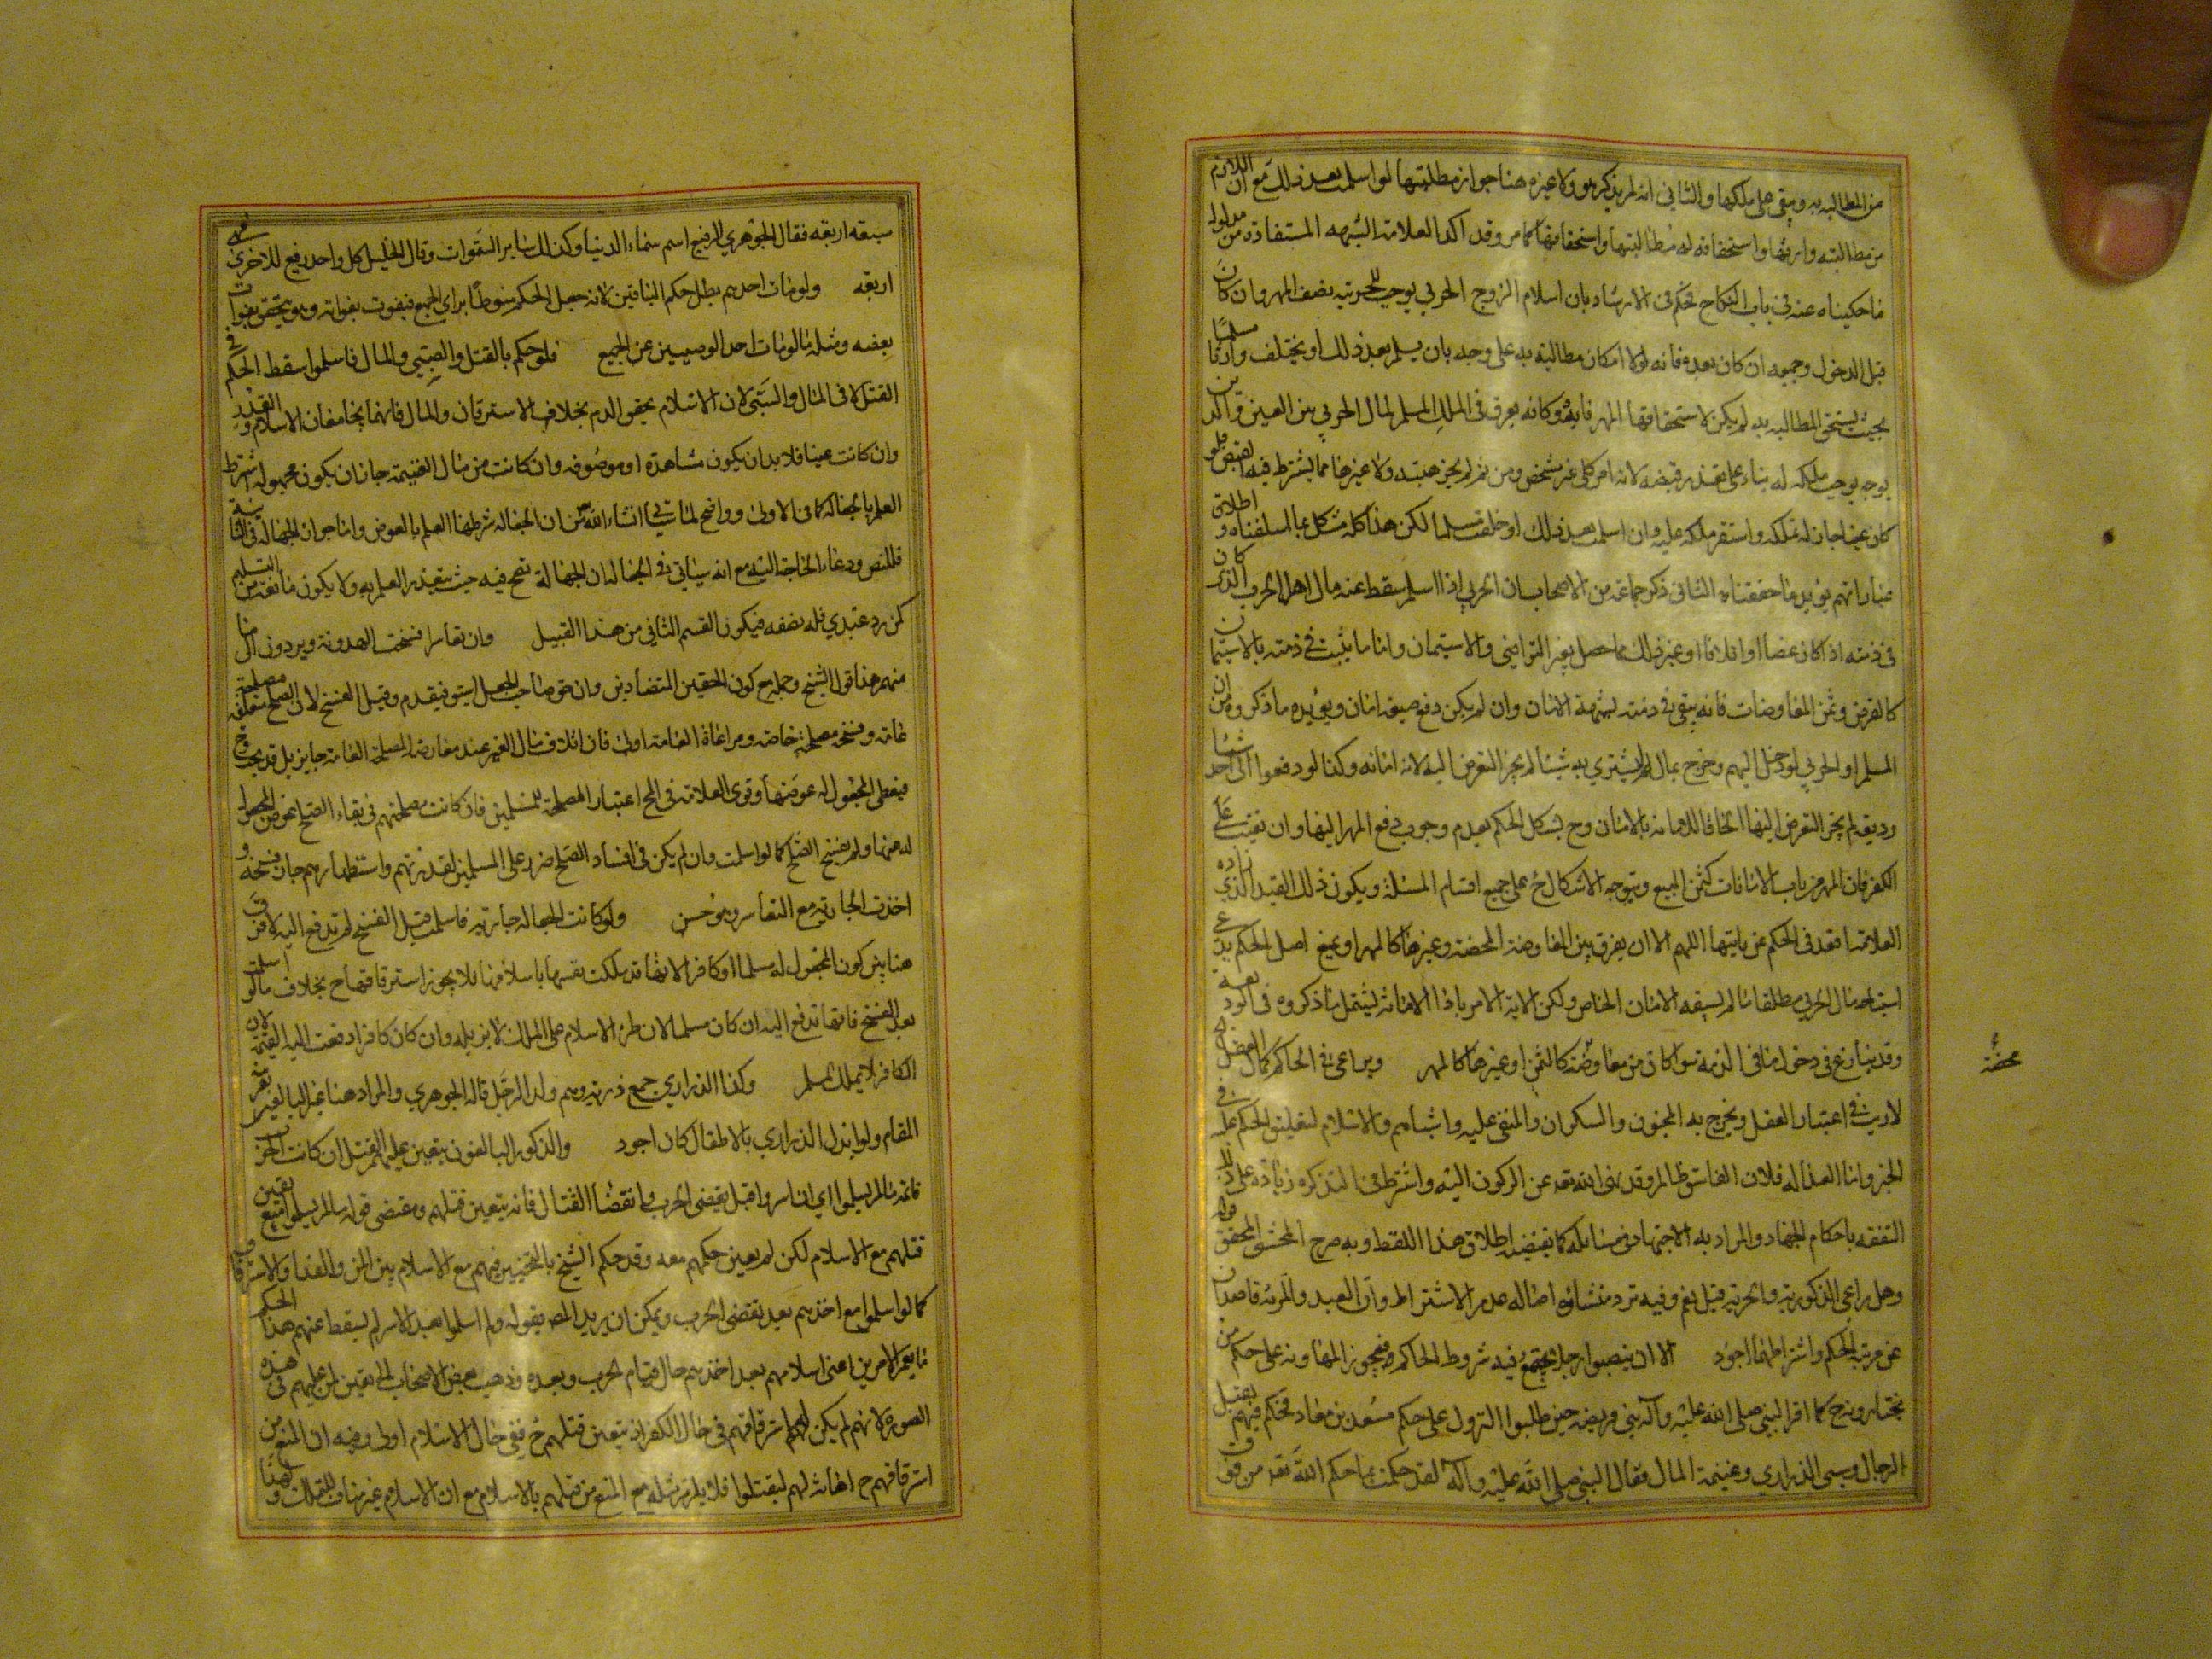 من المطالبه به ويبقى على ملكها والثاني انه لم يذكر هو ولا غيره هنا جواز مطالبتها لو اسلمت بعد ذلك مع ان اللازم
من مطالبته وارثها واستحقاقه له مطالبتها واستحقاقها كما مر وقد اكد العلامة الشبهه المستفادة من مدلول
ما حكيناه عنه في باب النكاح فحكم في الارشاد بان اسلام الزوج الحربي يوجب للحربيه نصف المهر وان كان
قبل الدخول وجميعه ان كان بعده فانه لولا امكان مطالبته به على وجه بان يسلم بعد ذلك او يختلف وارثا مسلما
بحيث يستحق المطالبه به لم يكن لاستحقاقها المهر فايده وكانه يفرق في الملك المسلم لمال الحربي بين العين والدين
بوجه يوجب ملكه له بناء على تقدير قبضه لانه امر كلي غير مشخص ومن ثم لم يجز هبته ولا غيرها مما يشترط فيه القبض فلو
كان عينا جاز له تملكه واستقر ملكه عليه وان اسلمت بعد ذلك او خلفت مسلما لكن هذا كله مشكل بما اسلفناه و اطلاق
عباراتهم يؤيد ما حققناه الثاني ذكر جماعة من الاصحاب ان الحربي اذا اسلم سقط عنه مال اهل الحرب الذى كان
في ذمته اذا كان غصبا او اتلافا او غير ذلك مما حصل بغير التراضي والاستيمان واما ما يثبت في ذمته بالاستيمان
كالقرض وثمن المعاوضات فانه يبقى في ذمته لشبهة الامان وان لم يكن دفع صيغة امان ويؤيده ما ذكروه من ان
المسلم او الحربي لو دخل اليهم وخرج بمال ليشتري به شيئا لم يجز التعرض اليه لانه امانه وكذا لو دفعوا الى احد شيئا
وديعه لم يجز التعرض اليها الحاقا للامانه بالامان وح يشكل الحكم بعدم وجوب دفع المهر اليها وان بقيت على
الكفر فان المهر من باب الامانات كثمن المبيع ويتوجه الاشكال ح على جميع اقسام المسئلة ويكون ذلك القيد الذي زاده
العلامة افقد في الحكم عن بابتها اللهم الا ان يفرق بين المعاوضة المحضة وغيرها كالمهر او يمنع اصل الحكم بدعـ
استباحه مال الحربي مطلقا ما لم يسبقه الامان الخاص ولكن الاية الامر باداء الامانة ليشتمل ما ذكروه في الوديعة
وقد ينازع في دخول ما في الذمة سواء كان من معاوضة كالثمن او غيرها كالمهر ويراعى في الحاكم كمال العقل
لا ريب في اعتبار العقل ويخرج به المجنون والسكران والمغمى عليه واشباههم والاسلام لتعليق الحكم عليه في
الخبر واما العداله فلان الفاسق ظالم وقد نهى الله تعه عن الركون اليه واشترط في التذكره زيادة على ذلك
التفقه باحكام الجهاد والمراد به الاجتهاد في مسائله كما يقتضيه اطلاق هذا اللفظ وبه صرح المحشى المحقق
وهل يراعى الذكوريه والحريه قيل نعم وفيه تردد منشاؤه اصاله عدم الاشتراط وان العبد والمرئة قاصران
عن مرتبه الحكم واشتراطهما اجود الا ان ينصبوا رجلا يجتمع فيه شروط الحاكم فيجوز المهادنه على حكم من
يختاره وح كما اقر النبي صلى الله عليه وآله بني قريضه حين طلبوا النزول على حكم سعد بن معاذ فحكم فيهم بقتل
الرجال وسبي الذراري وغنيمة المال فقال النبي صلى الله عليه وآله لقد حكمت بما حكم الله تعه من فوق
محضة
سبعه اربعه فقال الجوهري الرقيع اسم سماء الدنيا وكذلك ساير السموات وقال الخليل كل واحد رقيع للاخرى
اربعه ولو مات احدهم بطل حكم الباقين لانه جعل الحكم منوطا براي الجميع فيفوت بفواته وهو يتحقق بفوات
بعضه ومثله ما لو مات احد الوصيين عن الجميع فلو حكم بالقتل والسبي والمال فاسلموا سقط الحكم في
القتل لا في المال والسبي لان الاسلام يحقن الدم بخلاف الاسترقاق والمال فانهما يجامعان الاسلام
وان كانت عينا فلا بد ان يكون مشاهدة او موصوفه وان كانت من مال الغنيمة جاز ان يكون مجهوله اشترط
العلم بالجعاله كما في الاولى وواضح لما سياتي انشاء الله من ان الجعاله شرطها العلم بالعوض واما جواز الجهالة في الثانية
فللنص ودعاء الحاجة اليه مع انه سياتي في الجعاله ان الجهالة تصح فيه حيث يتعذر العلم به ولا يكون مانعة من التسليم
كمن رد عبدي فله نصفه فيكون القسم الثاني من هذا القبيل وان تعاسرا فسخت الهدونة ويردون الى مامنهم
هذا قول الشيخ وجملته كون الحقين المتضادين وان حق صاحب الجعل اسبق فيقدم وقيل الفسخ لان الصلح مصلحته متعلقه
عامة وفسخه مصلحة خاصه ومراعاة العامة اولى فان اتلاف مال الغير عند معارضة المصلحة العامه جايز بل قد يجب وح
فيعطى المجعول له عوضها وقوى العلامة في المخ اعتبار المصلحة للمسلمين فان كانت مصلحتهم في بقاء الصلح عوض المجعول
له عنها ولم يفسخ الصلح كما لو اسلمت وان لم يكن في افساد الصلح ضرر على المسلمين لقدرتهم واستظهارهم جاز فسخه و
اخذت الجاريه مع التعاسر وهو حسن ولو كانت الجعاله جاريه فاسلمت قبل الفتح لم تدفع اليه لا فرق
هنا بين كون المجعول له مسلما او كافرا لانها قد ملكت نفسها باسلامها فلا يجوز استرقاقها ح بخلاف ما لو اسلمت
بعد الفتح فانها تدفع اليه ان كان مسلما لان طرو الاسلام على الملك لا يزيله وان كان كافرا دفعت اليه القيمة لان
الكافر لا يملك المسلم وكذا الذراري جمع ذرية وهم ولد الرجل قاله الجوهري والمراد هنا غير البالغين بقرينة
المقام ولو ابدل الذراري بالاطفال كان اجود والذكور البالغون يتعين عليهم القتل ان كانت الحرب
قائمة ما لم يسلموا اي ان اسروا قبل تقضى الحرب وانقضاء القتال فانه يتعين قتلهم ومقتضى قوله ما لم يسلموا
قتلهم مع الاسلام لكن لم يعين حكمهم معه وقد حكم الشيخ بالتخيير فيهم مع الاسلام بين المن والفداء والاسترقاق
كما لو اسلموا مع اخذهم بعد تقضى الحرب ويمكن ان يريد المصه بقوله ولو اسلموا بعد الاسر لم يسقط عنهم هذا الحكم
ما يعم الامرين اعنى اسلامهم بعد اخذهم حال قيام الحرب وبعده وذهب بعض الاصحاب الى تعين المن عليهم في هذه
الصورة لانهم لم يكن لهم استرقاقهم في حال الكفر اذ يتعين قتلهم ح ففي حال الاسلام اولى وفيه ان المنع من
استرقاقهم ح اهانة لهم ليقتلوا فلا يلزم مثله مع المنع من قتلهم بالاسلام مع ان الاسلام غير مناف للتملك و لهذا